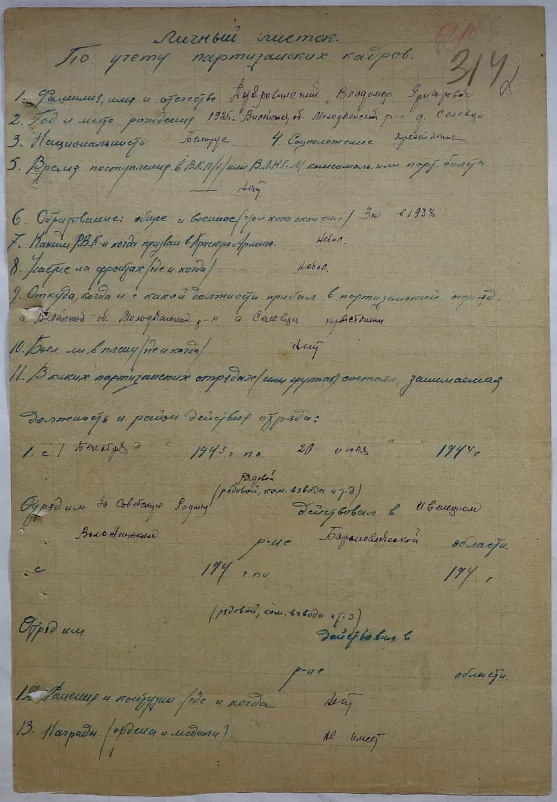 Личный листок.
По учету партизанских кадров.
314
1. Фамилия, имя и отчество Владимир Григорович
2. Год и место рождения 1925. Вилейской об. Молодечненский р-н д.
3. Национальность Белорус 4. Соцположение крестьянин
5. Время поступления в В.К.П/б/ или В.Л.К.С.М комсомоль. или парт. билета
— Нет
6. Образование: общее и военное /чем когда окончил/ 3кл в 1938
7. Каким Р.В.К и когда призван в Красную Армию. Небыл.
8. Участие на фронтах /где и когда/ Небыл.
9. Откуда, когда и с какой должности прибыл в партизанский отряд
об. Молодечненский р-н д. крестьянин
10. Был ли в плену /где и когда/ Нет
11. В каких партизанских отрядах /или других/ состоял, занимаемая
должность и район действия отряда:
1. с 1 1943 г по 20 июля 1944 г
рядовой
(рядовой, ком. взвода и т-д)
Отряд им За Советскую Родину действовал в Ивенецком
Воложинском р-не Барановичской области.
с 194 г. по 194 г
(рядовой, ком. взвода и т-д)
Отряд им действовал в
р-не области.
12. Ранения и контузии /где и когда Нет
13. Награды (ордена и медали). Не имеет